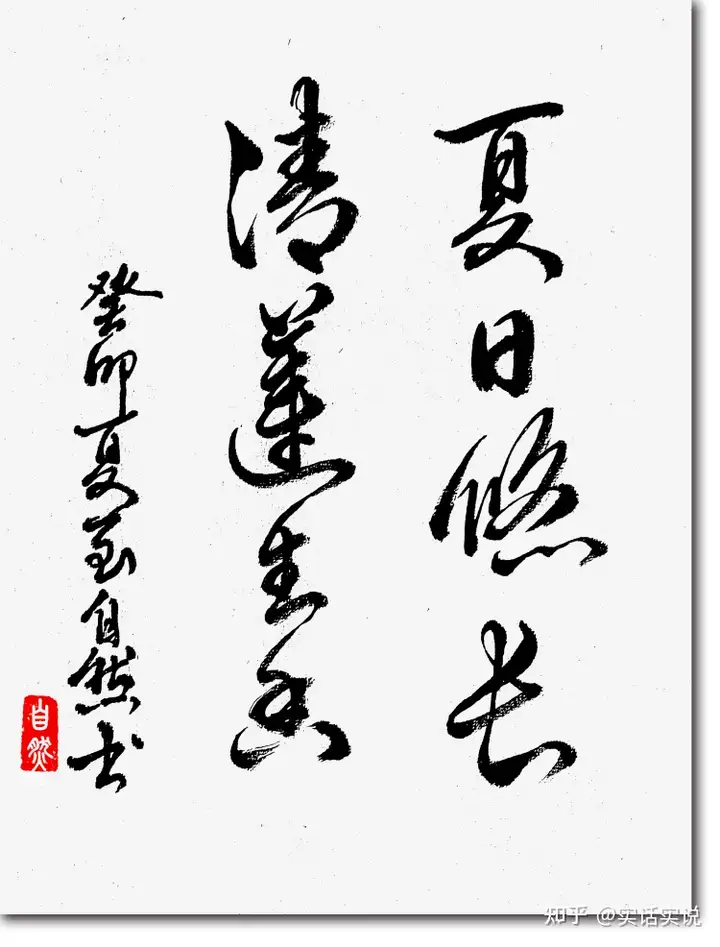 夏日悠长
清莲生香
癸卯夏至自然书
自然
知乎 @实话实说